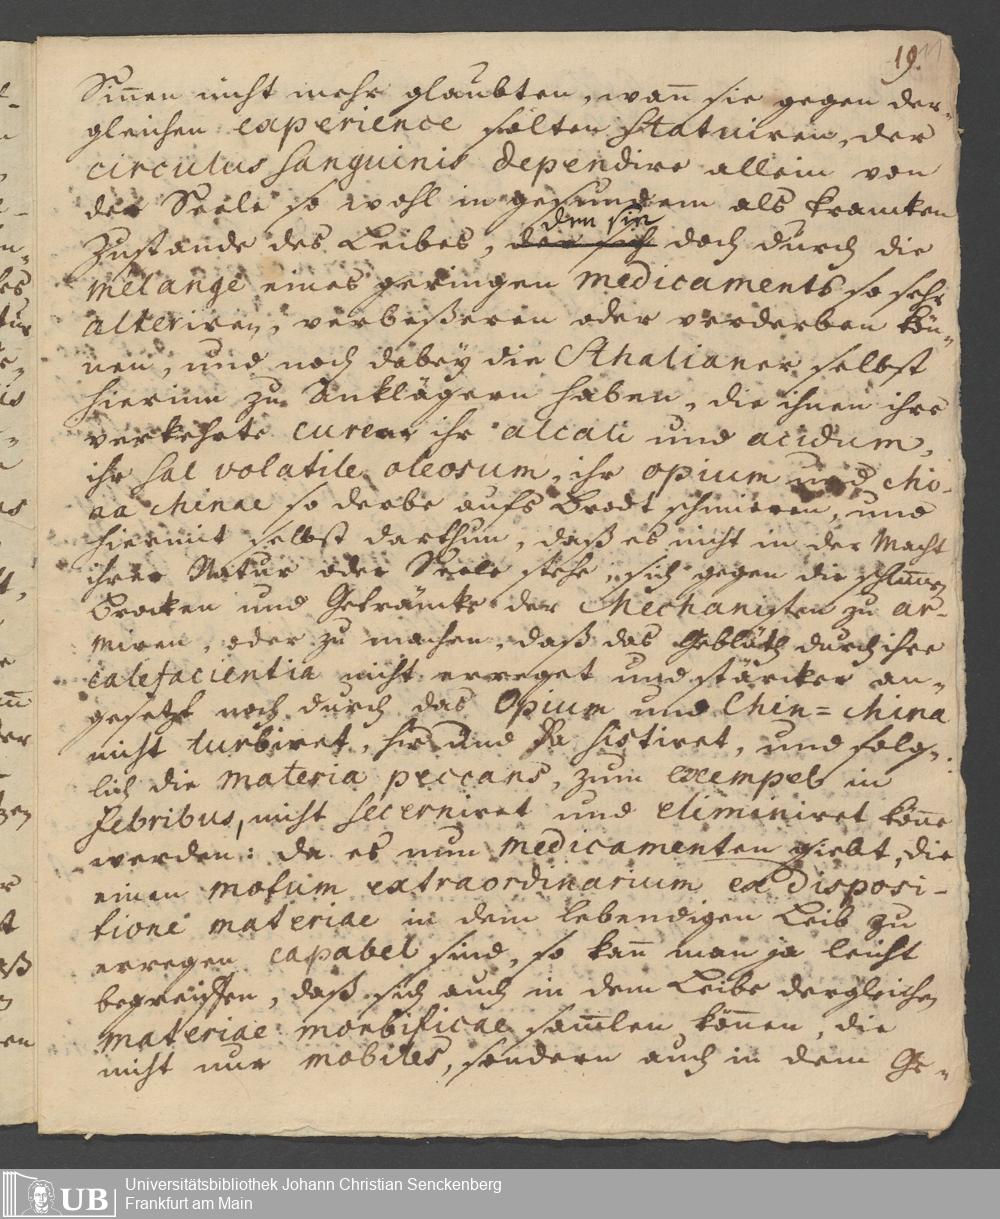 19.
Sinnen nicht mehr glaubten, wañ sie gegen der-
gleichen experience solten statuiren, der
circulus sanguinis dependire allein von
der Seele so wohl in gesundem als krancken
Zustande des Leibes, der sich doch durch die
den sie
melange eines geringen medicaments so sehr
alteriren, verbeßeren oder verderben kön-
nen, und noch dabey die Sthalianer selbst
hierinn zu Anklägern haben, die ihnen ihre
verkehrte curen ihr alcali und acidum,
ihr sal volatile oleosum, ihr opium und chi-
na chinae so derbe aufs Brodt schmieren, und
hiermit selbst darthun, daß es nicht in der Macht
ihrer Natur oder Seele stehe, sich gegen die schlim̃en
Brocken und Geträncke der Mechanisten zu ar-
miren, oder zu machen, daß das Geblüth durch ihre
calefacientia nicht erreget und stärcker an-
gesetzt noch durch das Opium und Chin=china
nicht turbiret, hie und da sistiret, und folg-
lich die materia peccans, zum exempel in
febribus, nicht secerniret und eliminiret köñe
werden: da es nun medicamenten giebt, die
einen motum extraordinarium ex disposi-
tione materiae in dem lebendigen Leib zu
erregen capabel sind, so kañ man ja leicht
begreiffen, daß sich auch in dem Leibe dergleichen
materiae morbificae sam̃len köñen, die
nicht nur mobiles, sondern auch in dem Ge-
UB
Universitätsbibliothek Johann Christian Senckenberg
Frankfurt am Main